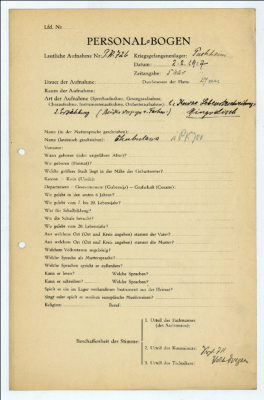 Lfd. Nr.
PERSONAL-BOGEN
Lautliche Aufnahme Nr.: PK 726 Kriegsgefangenenlager:
Datum: 2.2.1917
Zeitangabe: 5 Uhr
Dauer der Aufnahme: Durchmesser der Platte: 27 cm
Raum der Aufnahme:
Art der Aufnahme (Sprechaufnahme, Gesangsaufnahme,
Choraufnahme, Instrumentenaufnahme, Orchesteraufnahme): 1. Kurze Lebensbeschreibung
2. Erzählung Mingrelisch
Name (in der Muttersprache geschrieben):
Name (lateinisch geschrieben):
Vorname:
Wann geboren (oder ungefähres Alter)?
Wo geboren (Heimat)?
Welche größere Stadt liegt in der Nähe des Geburtsortes?
Kanton – Kreis (Ujedsd):
Departement – Gouvernement (Gubernija) – Grafschaft (County):
Wo gelebt in den ersten 6 Jahren?
Wo gelebt vom 7. bis 20. Lebensjahr?
Was für Schulbildung?
Wo die Schule besucht?
Wo gelebt vom 20. Lebensjahr?
Aus welchem Ort (Ort und Kreis angeben) stammt der Vater?
Aus welchem Ort (Ort und Kreis angeben) stammt die Mutter?
Welchem Volksstamm angehörig?
Welche Sprache als Muttersprache?
Welche Sprachen spricht er außerdem?
Kann er lesen? Welche Sprachen?
Kann er schreiben? Welche Sprachen?
Spielt er ein im Lager vorhandenes Instrument aus der Heimat?
Singt oder spielt er modern europäische Musikweisen?
Religion: Beruf:
1. Urteil des Fachmannes
(des Assistenten):
Beschaffenheit der Stimme:
2. Urteil des Kommissars:
3. Urteil des Technikers: